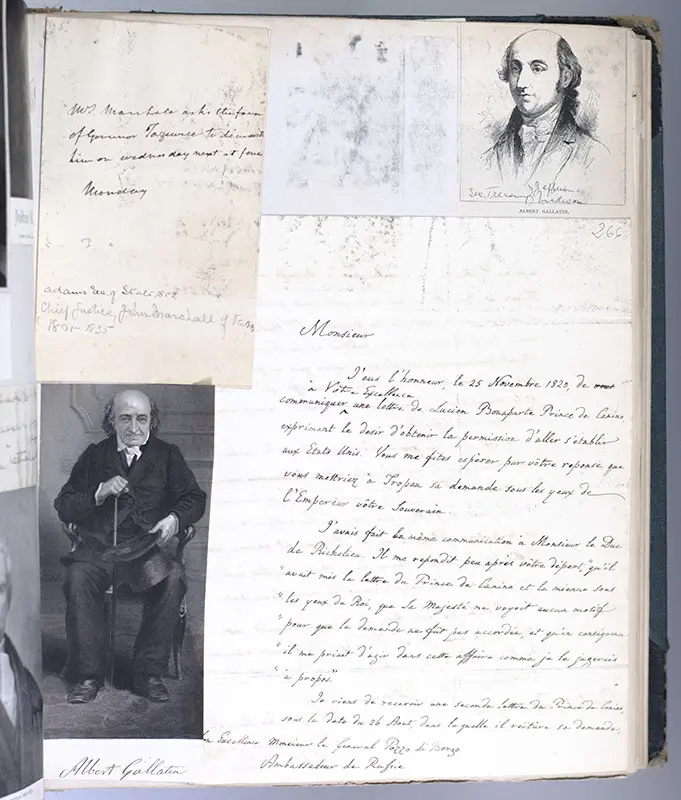 Mr. Marshall asks the favor
of Governor Tazewell to dine with
him on wednesday next at four
Monday
adams Sec. of State
Chief Justice, John Marshall of
1801-1835
Sec. Treasury Jefferson
Madison
ALBERT GALLATIN.
266
Monsieur
J'eus l'honneur, le 25 Novembre 1820, de
à Votre Excellence
communiquer une lettre de Lucien Bonaparte Prince de Canino
exprimant le desir d'obtenir la permission d'aller s'établir
aux Etats Unis. Vous me fites espérer par vôtre reponse que
vous mettriez à Tropau sa demande sous les yeux de
l'Empereur vôtre Souverain.
J'avais fait la même communication à Monsieur le Duc
de Richelieu. Il me repondit peu après vôtre départ, "qu'il
"avait mis la lettre du Prince de Canino et la mienne sous
"les yeux du Roi, que Sa Majesté ne voyoit aucun motif
"pour que la demande ne fut pas accordée, et qu'en conséquence
"il me priait d'agir dans cette affaire comme je le jugerais
"à propos."
Je viens de recevoir une seconde lettre du Prince de Canino,
sous la date du 26 Aout, dans laquelle il réitère sa demande,
Son Excellence Monsieur le General Pozzo di Borgo
Ambassadeur de Russie
Albert Gallatin